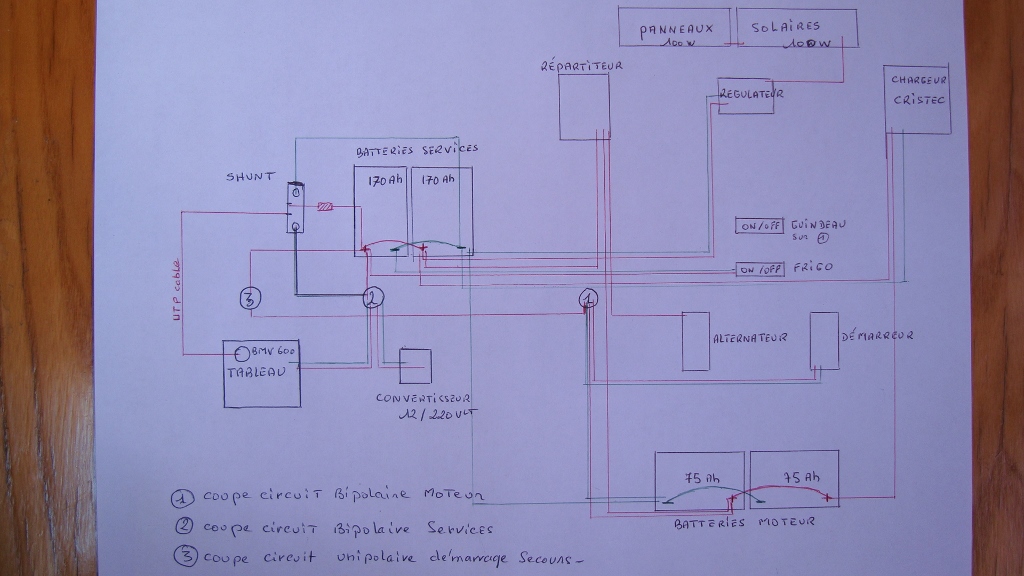 PANNEAUX SOLAIRES
100W 100W
RÉPARTITEUR
REGULATEUR
CHARGEUR
CRISTEC
BATTERIES SERVICES
170 Ah 170 Ah
SHUNT
ON/OFF GUINDEAU
sur 1
ON/OFF FRIGO
3 2 1
UTP cable
BMV 600
TABLEAU
ALTERNATEUR DÉMARREUR
CONVERTISSEUR
12/220 VLT
75 Ah 75 Ah
BATTERIES MOTEUR
1 COUPE CIRCUIT Bipolaire MOTEUR
2 COUPE CIRCUIT Bipolaire Services
3 COUPE CIRCUIT unipolaire démarrage Secours-